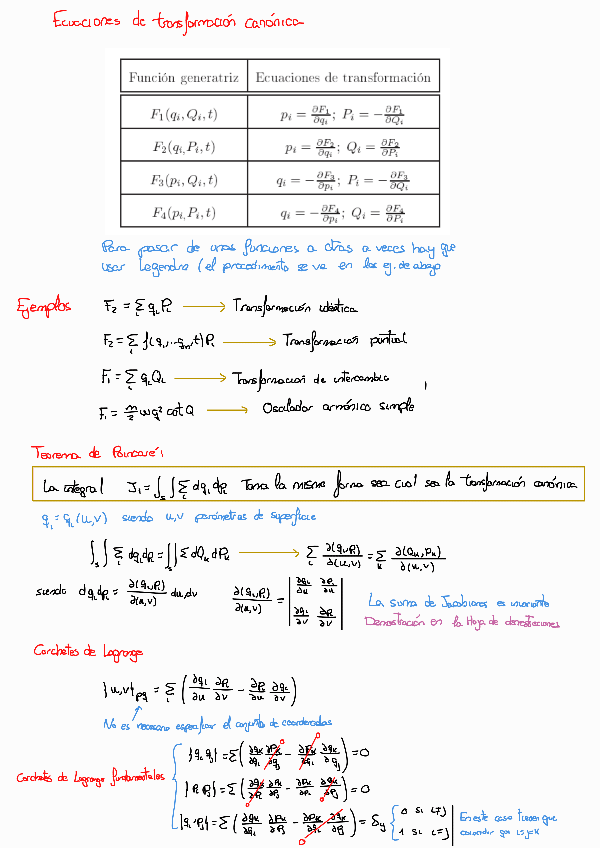 Ecuaciones de transformación canónica
Función generatriz | Ecuaciones de transformación
F₁(qᵢ, Qᵢ, t) | pᵢ = ∂F₁/∂qᵢ ; Pᵢ = −∂F₁/∂Qᵢ
F₂(qᵢ, Pᵢ, t) | pᵢ = ∂F₂/∂qᵢ ; Qᵢ = ∂F₂/∂Pᵢ
F₃(pᵢ, Qᵢ, t) | qᵢ = −∂F₃/∂pᵢ ; Pᵢ = −∂F₃/∂Qᵢ
F₄(pᵢ, Pᵢ, t) | qᵢ = −∂F₄/∂pᵢ ; Qᵢ = ∂F₄/∂Pᵢ
Para pasar de unas funciones a otras a veces hay que
usar Legendre (el procedimiento se ve en los ej. de abajo
Ejemplos F₂ = Σᵢ qᵢ Pᵢ → Transformación idéntica
F₂ = Σᵢ f(q₁...qₙ,t) Pᵢ → Transformación puntual
F₁ = Σᵢ qᵢ Qᵢ → Transformación de intercambio
F₁ = m/2 ω q² cot Q → Oscilador armónico simple
Teorema de Poincaré:
La integral J₁ = ∫∫ₛ Σᵢ dqᵢ dpᵢ Toma la misma forma sea cual sea la transformación canónica
qᵢ = qᵢ(u,v) siendo u,v parámetros de superficie
∫∫ₛ Σᵢ dqᵢ dpᵢ = ∫∫ₛ Σ dQₖ dPₖ → Σᵢ ∂(qᵢ,pᵢ)/∂(u,v) = Σₖ ∂(Qₖ,Pₖ)/∂(u,v)
siendo dqᵢ dpᵢ = ∂(qᵢ,pᵢ)/∂(u,v) du dv ∂(qᵢ,pᵢ)/∂(u,v) = | ∂qᵢ/∂u ∂pᵢ/∂u ; ∂qᵢ/∂v ∂pᵢ/∂v |
La suma de Jacobianos es invariante
Demostración en la Hoja de demostraciones
Corchetes de Lagrange
{u,v}pq = Σᵢ (∂qᵢ/∂u ∂pᵢ/∂v − ∂pᵢ/∂u ∂qᵢ/∂v)
No es necesario especificar el conjunto de coordenadas
Corchetes de Lagrange fundamentales
{qᵢ qⱼ} = Σ (∂qₖ/∂qᵢ ∂pₖ/∂qⱼ − ∂pₖ/∂qᵢ ∂qₖ/∂qⱼ) = 0
{pᵢ pⱼ} = Σ (∂qₖ/∂pᵢ ∂pₖ/∂pⱼ − ∂pₖ/∂pᵢ ∂qₖ/∂pⱼ) = 0
{qᵢ pⱼ} = Σ (∂qₖ/∂qᵢ ∂pₖ/∂pⱼ − ∂pₖ/∂qᵢ ∂qₖ/∂pⱼ) = δᵢⱼ { 0 si i≠j
1 si i=j
En este caso tienen que
coincidir que i=j=k